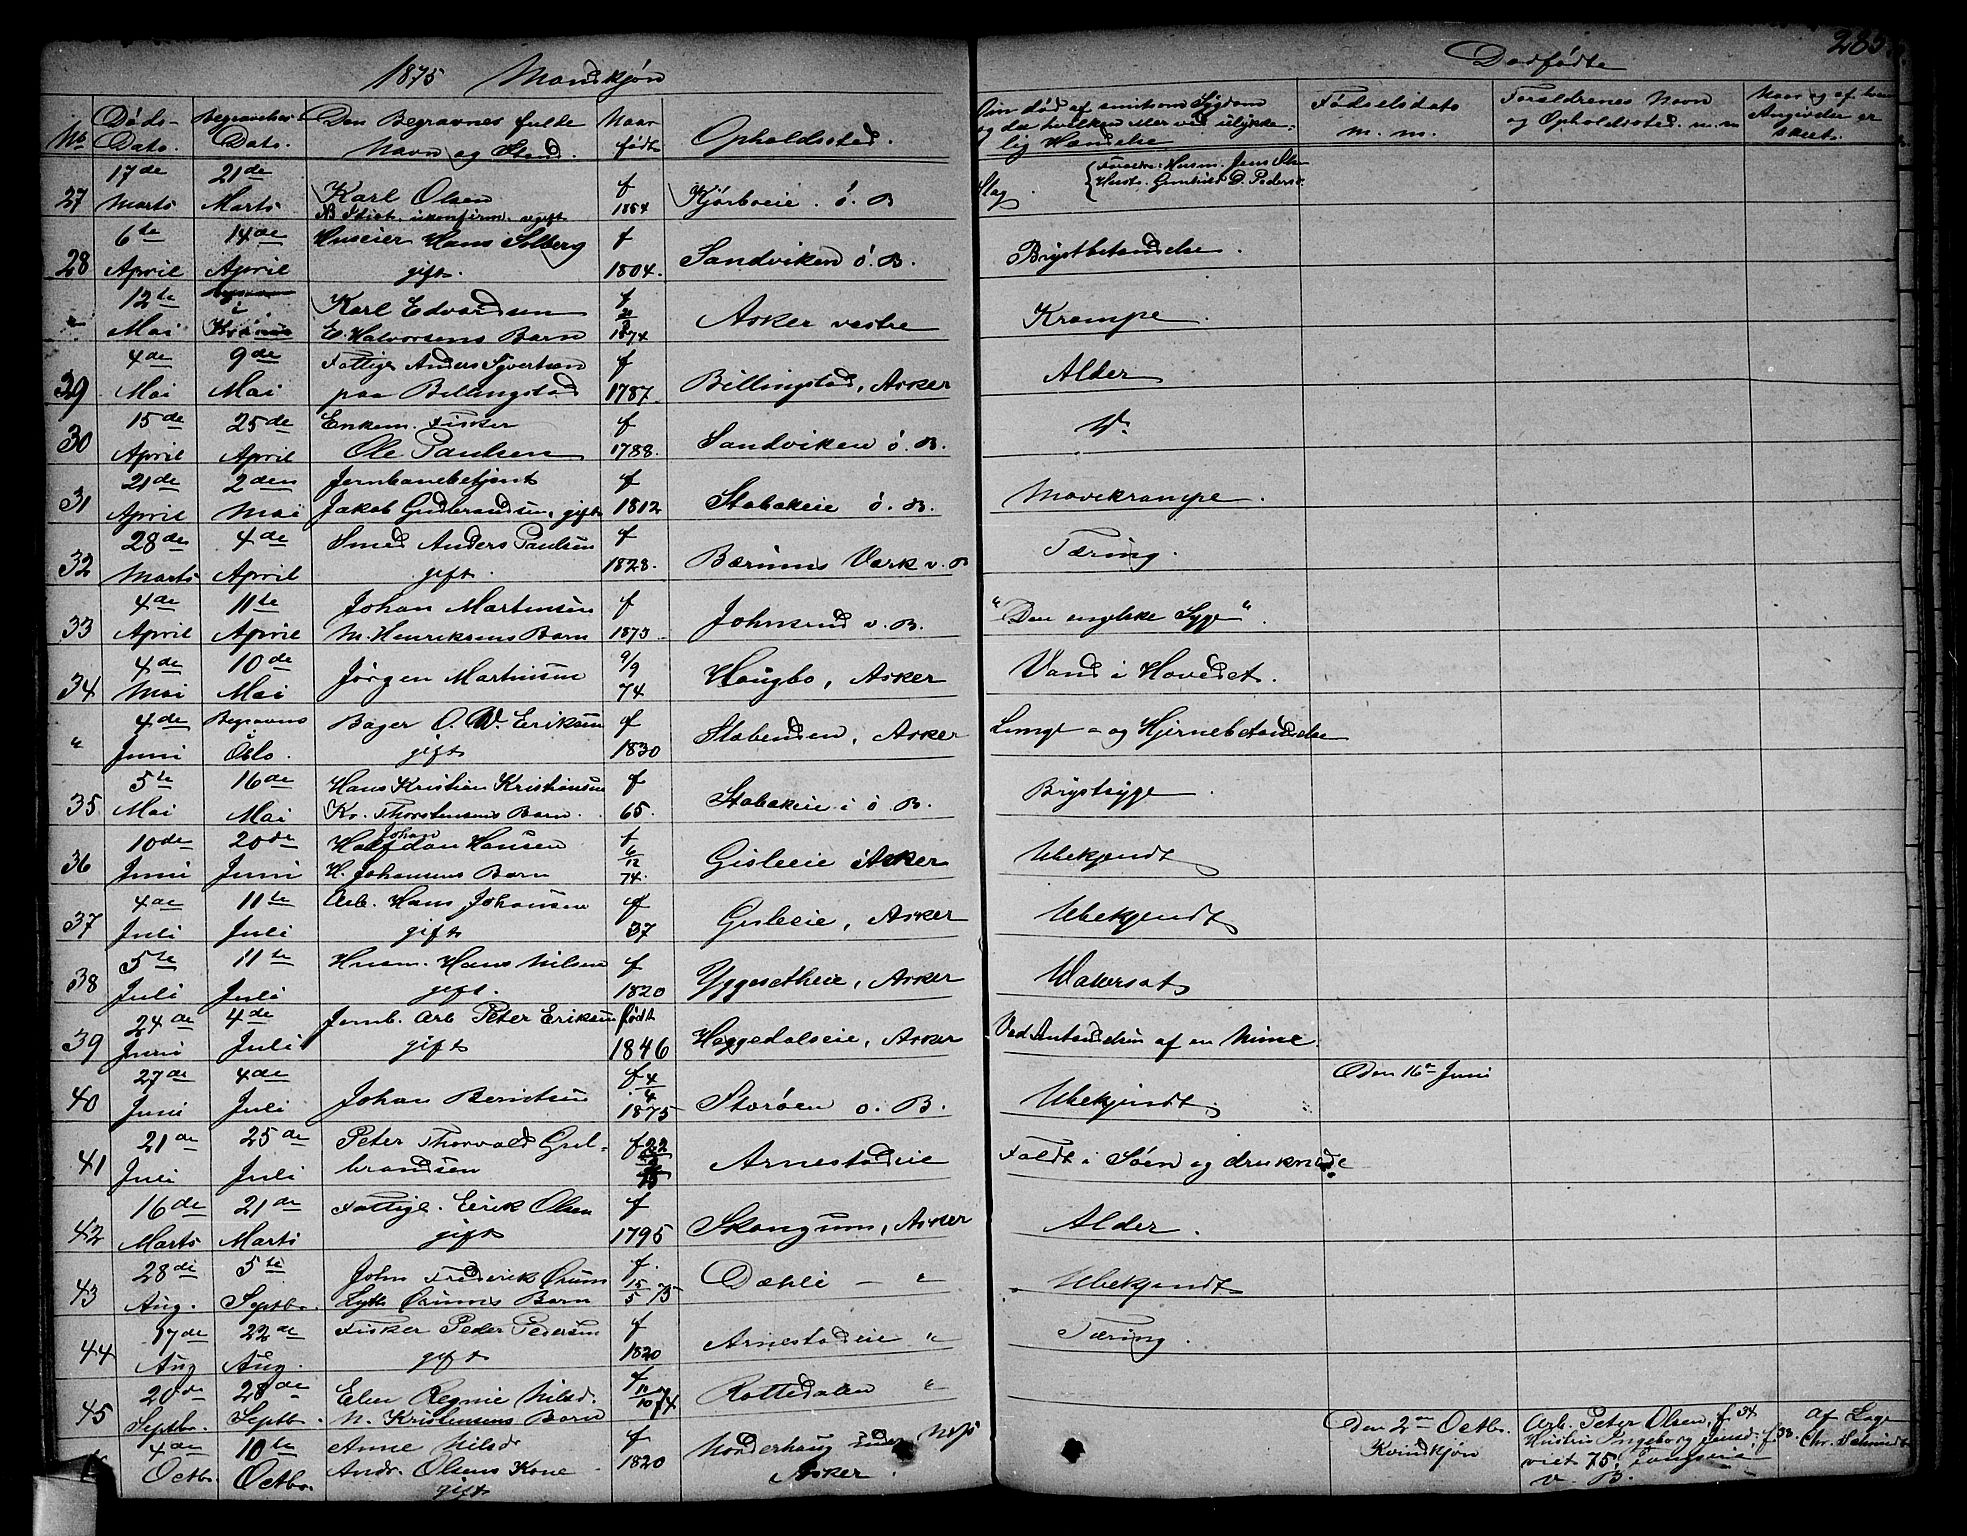 1875 Mandkjøn
Dødfødte
285
No
Døds-
Dato.
Begravelses
Dato.
Den Begravnes fulde
Navn og Stand.
Naar
født
Opholdssted.
Om død af smitsom Sygdom
lig Hændelse
Fødselsdato
m. m.
Forældrenes Navn
og Opholdssted m. m
Angivelse er
skeet.
27 17de Marts 21de Marts Karl Olsen f 1854 Kjørboeie. ö. B Slag.
NB Idiot. ukonfirm. ugift
28 6te April 14de April Huseier Hans Solberg gift. f 1804. Sandviken ö. B. Brystbetændelse.
" 12te Mai Karl Edvardsen
E. Halvorsens Barn 1874 Asker vestre Krampe.
29 4de Mai 9de Mai Fattig Anders Syvertsen
paa Billingstad f 1787. Billingstad, Asker Alder
30 15de April 25de April Enkem. Fisker
Ole Paulsen f 1788. Sandviken ö. B.
31 21de April 2den Mai Jernbanebetjent
Jakob Gudbrandsen, gift f 1812 Stabækeie ö. B. Mavekrampe.
32 28de Marts 4de April Smed Anders Paulsen
gift. f 1828. Bærums Værk v. B Tæring.
33 4de April 11te April Johan Martinsen
M. Henriksens Barn f 1873. Johnsrud v. B. "Den engelske Syge".
34 4de Mai 10de Mai Jørgen Martinsen 9/9 74 Haugbo, Asker Vand i Hovedet.
" 4de Juni Begravns Oslo. Bager O. W. Eriksen
gift f 1830 Stabenden, Asker Lunge- og Hjernebetændelse
35 5te Mai 16de Mai Hans Kristian Kristiansen
Kr. Thorstensens Barn. f 65. Stabækeie i ö B. Brystsyge.
36 10de Juni 20de Juni Halfdan Johan Hansen
H. Johansens Barn f 6/12 74. Gisleeie Asker Ubekjendt
37 4de Juli 11te Juli Arb. Hans Johansen
gift f 37 Gisleeie, Asker Ubekjendt
38 5te Juli 11te Juli Husm. Hans Nilsen
gift. f 1820 Yggesetheie, Asker Vatersot
39 24de Juni 4de Juli Jernb. Arb Peter Eriksen
gift født 1846 Heggedalseie, Asker Ved Antændelsen af en Mine.
40 27de Juni 4de Juli Johan Berntsen f 4/4 1875 Storøen ö. B. Ubekjendt. Den 16de Juni
41 21de Juli 25de Juli Peter Thorvald Gul-
brandsen f 22 Arnestadeie Faldt i Søen og druknede.
42 16de Marts 21de Marts Fattigl. Erik Olsen
gift f 1795 Skaugum, Asker Alder.
43 28de Aug. 5te Septbr. John Frederik Ørum
Lytk Ørums Barn f. 15/5 75 Dæhli — " Ubekjendt
44 17de Aug 22de Aug. Fisker Peder Pedersen
gift f 1820 Arnestadeie " Tæring.
45 20de Septbr. 28de Septbr. Elen Regine Nilsd.
N. Kristensens Barn f 11/10 74 Rottedalen "
4de Octbr. 10te Octbr. Anne Nilsdr
Andr. Olsens Kone
gift f 1820 Nonderhaug
Asker.
Den 2den Octbr.
Kvindkjøn
Arb. Peter Olsen, f 34
Hustru Ingeborg Jensd. f 38.
viet 75!
v. B.
Af Læge
Chr. Schmidt